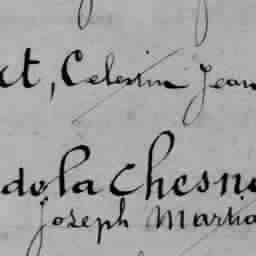 ct, Celestin Jean
de la Chesn
Joseph Martia